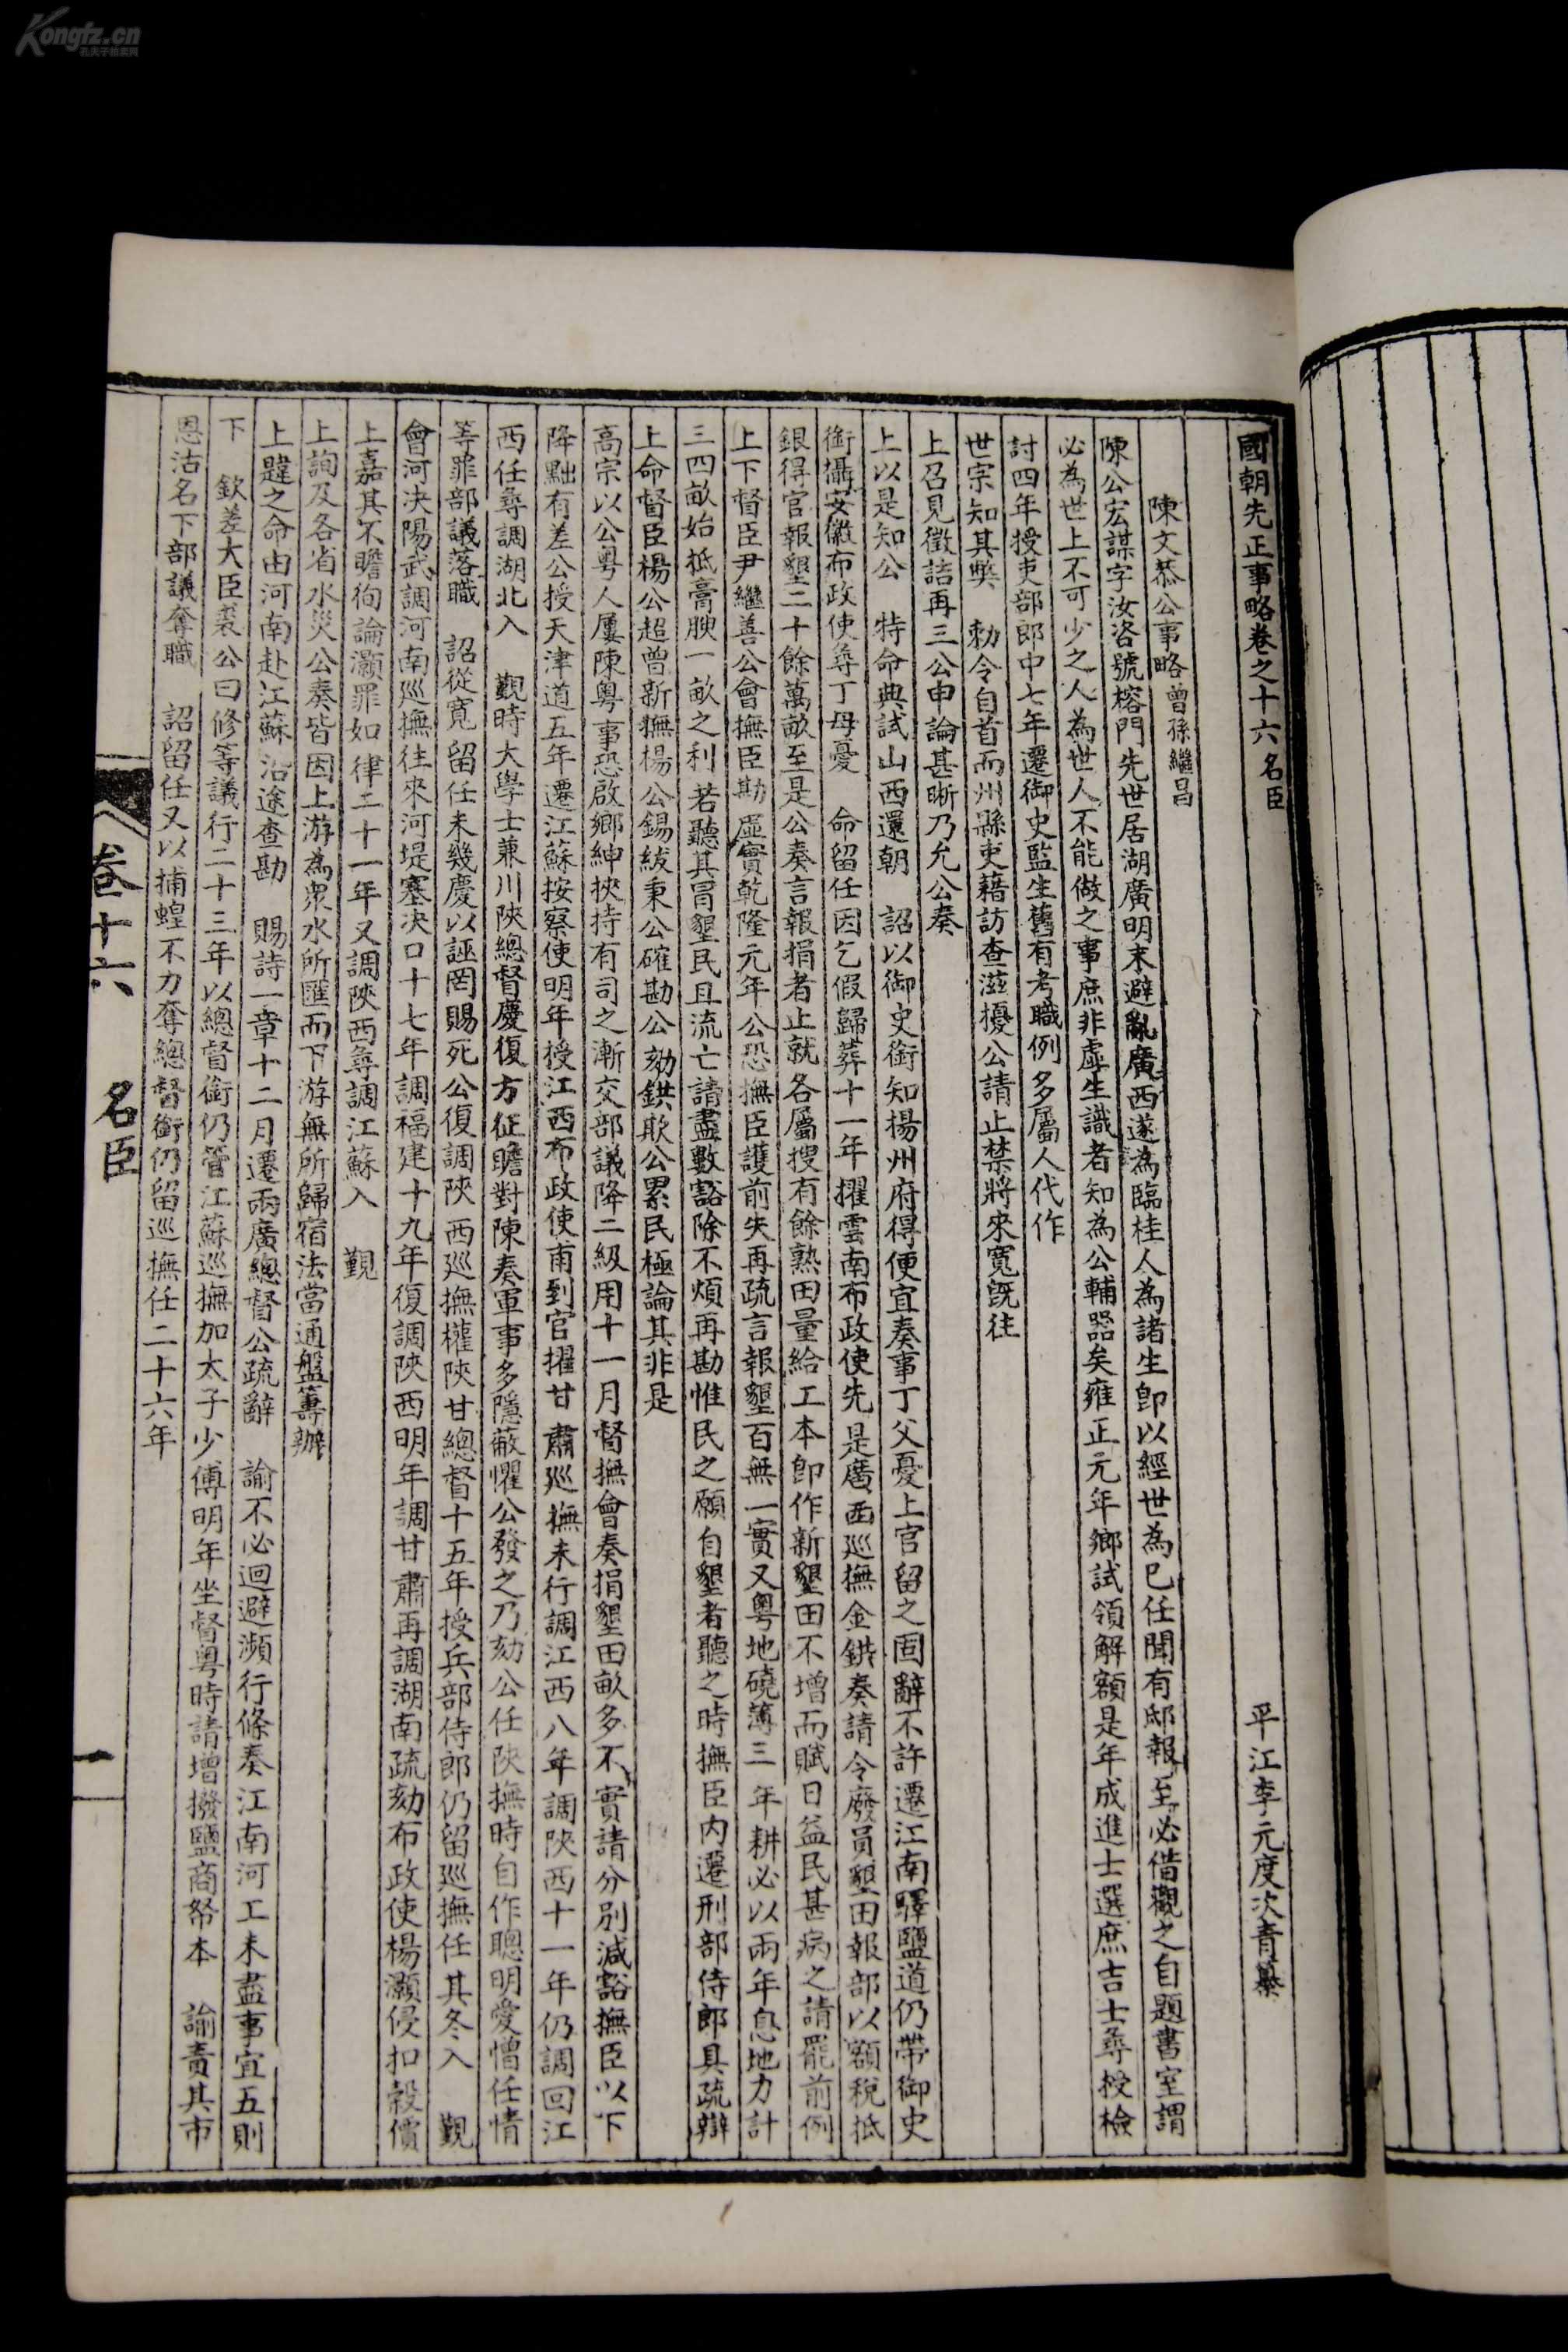 Kongfz.cn
孔夫子拍卖网
國朝先正事略卷之十六 名臣 平江李元度次青纂
陳文恭公事略 曾孫繼昌
陳公宏謀字汝咨號榕門先世居湖廣明末避亂廣西遂為臨桂人為諸生卽以經世為已任聞有邸報至必借觀之自題書室謂
必為世上不可少之人為世人不能做之事庶非虛生識者知為公輔器矣雍正元年鄉試領解額是年成進士選庶吉士尋授檢
討四年授吏部郎中七年遷御史監生舊有考職例多屬人代作
世宗知其獘 勅令自首而州縣吏藉訪查滋擾公請止禁將來寬旣往
上召見徵詰再三公申論甚晰乃允公奏
上以是知公 特命典試山西還朝 詔以御史銜知揚州府得便宜奏事丁父憂上官留之固辭不許遷江南驛鹽道仍帶御史
銜攝安徽布政使尋丁母憂 命留任因乞假歸葬十一年擢雲南布政使先是廣西巡撫金鉷奏請令廢員墾田報部以額稅抵
銀得官報墾二十餘萬畝至是公奏言報捐者止就各屬搜有餘熟田量給工本卽作新墾田不增而賦日益民甚病之請罷前例
上下督臣尹繼善公會撫臣勘虛實乾隆元年公恐撫臣護前失再疏言報墾百無一實又粵地磽薄三年耕必以兩年息地力計
三四畝始抵膏腴一畝之利若聽其冒墾民且流亡請盡數豁除不煩再勘惟民之願自墾者聽之時撫臣內遷刑部侍郎具疏辯
上命督臣楊公超曾新撫楊公錫紱秉公確勘公劾鉷欺公累民極論其非是
高宗以公粵人屢陳粵事恐啟鄉紳挾持有司之漸交部議降二級用十一月督撫會奏捐墾田畝多不實請分別減豁撫臣以下
降黜有差公授天津道五年遷江蘇按察使明年授江西布政使甫到官擢甘肅巡撫未行調江西八年調陝西十一年仍調回江
西任尋調湖北入 覲時大學士兼川陝總督慶復方征瞻對陳奏軍事多隱蔽懼公發之乃劾公任陝撫時自作聰明愛憎任情
等罪部議落職 詔從寬留任未幾慶以誣罔賜死公復調陝西巡撫權陝甘總督十五年授兵部侍郎仍留巡撫任其冬入 覲
會河决陽武調河南巡撫往來河堤塞决口十七年調福建十九年復調陝西明年調甘肅再調湖南疏劾布政使楊灝侵扣穀價
上嘉其不瞻徇論灝罪如律二十一年又調陝西尋調江蘇入 覲
上詢及各省水災公奏皆因上游為眾水所匯而下游無所歸宿法當通盤籌辦
上韙之命由河南赴江蘇沿途查勘 賜詩一章十二月遷兩廣總督公疏辭 諭不必迴避瀕行條奏江南河工未盡事宜五則
下 欽差大臣裘公曰修等議行二十三年以總督銜仍管江蘇巡撫加太子少傅明年坐督粵時請增撥鹽商帑本 諭責其市
恩沽名下部議奪職 詔留任又以捕蝗不力奪總督銜仍留巡撫任二十六年
卷十六 名臣 一